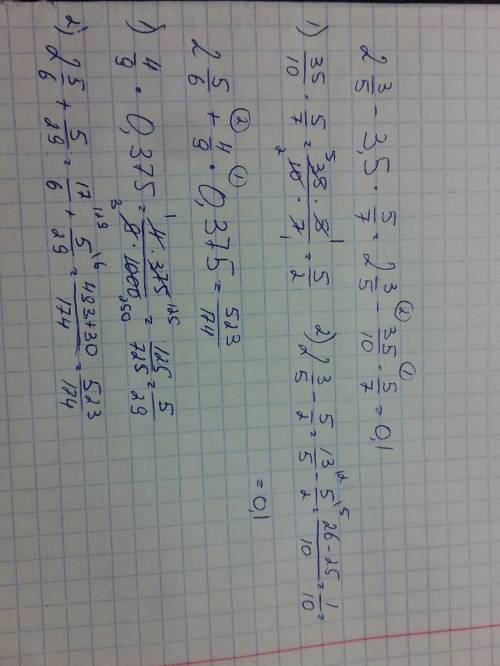 2 3/5 - 3,5 · 5/7 = 2 3/5 -② 35/10 ·① 5/7 = 0,1
1) 35/10 · 5/7 = 35 · 5 / 10 · 7 = 5/2 2) 2 3/5 - 5/2 = 13/5 - 5/2 = 26-25/10 = 1/10 =
= 0,1
2 5/6 +② 4/9 ·① 0,375 = 523/174
1) 4/9 · 0,375 = 4 · 375 / 9 · 1000 = 125/725 = 5/29
2) 2 5/6 + 5/29 = 17/6 + 5/29 = 493+30/174 = 523/174